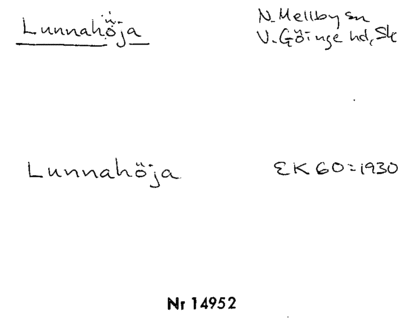 Lunnahöja
N. Mellby sn
V. Göinge hd, Sk
Lunnahöja
EK 60 = 1930
Nr 14952